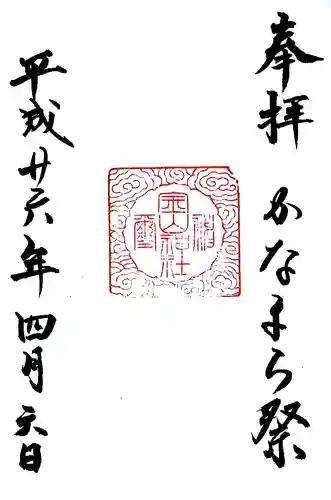 奉拝 かなまら祭
金山神社
神璽
平成廿六年四月六日